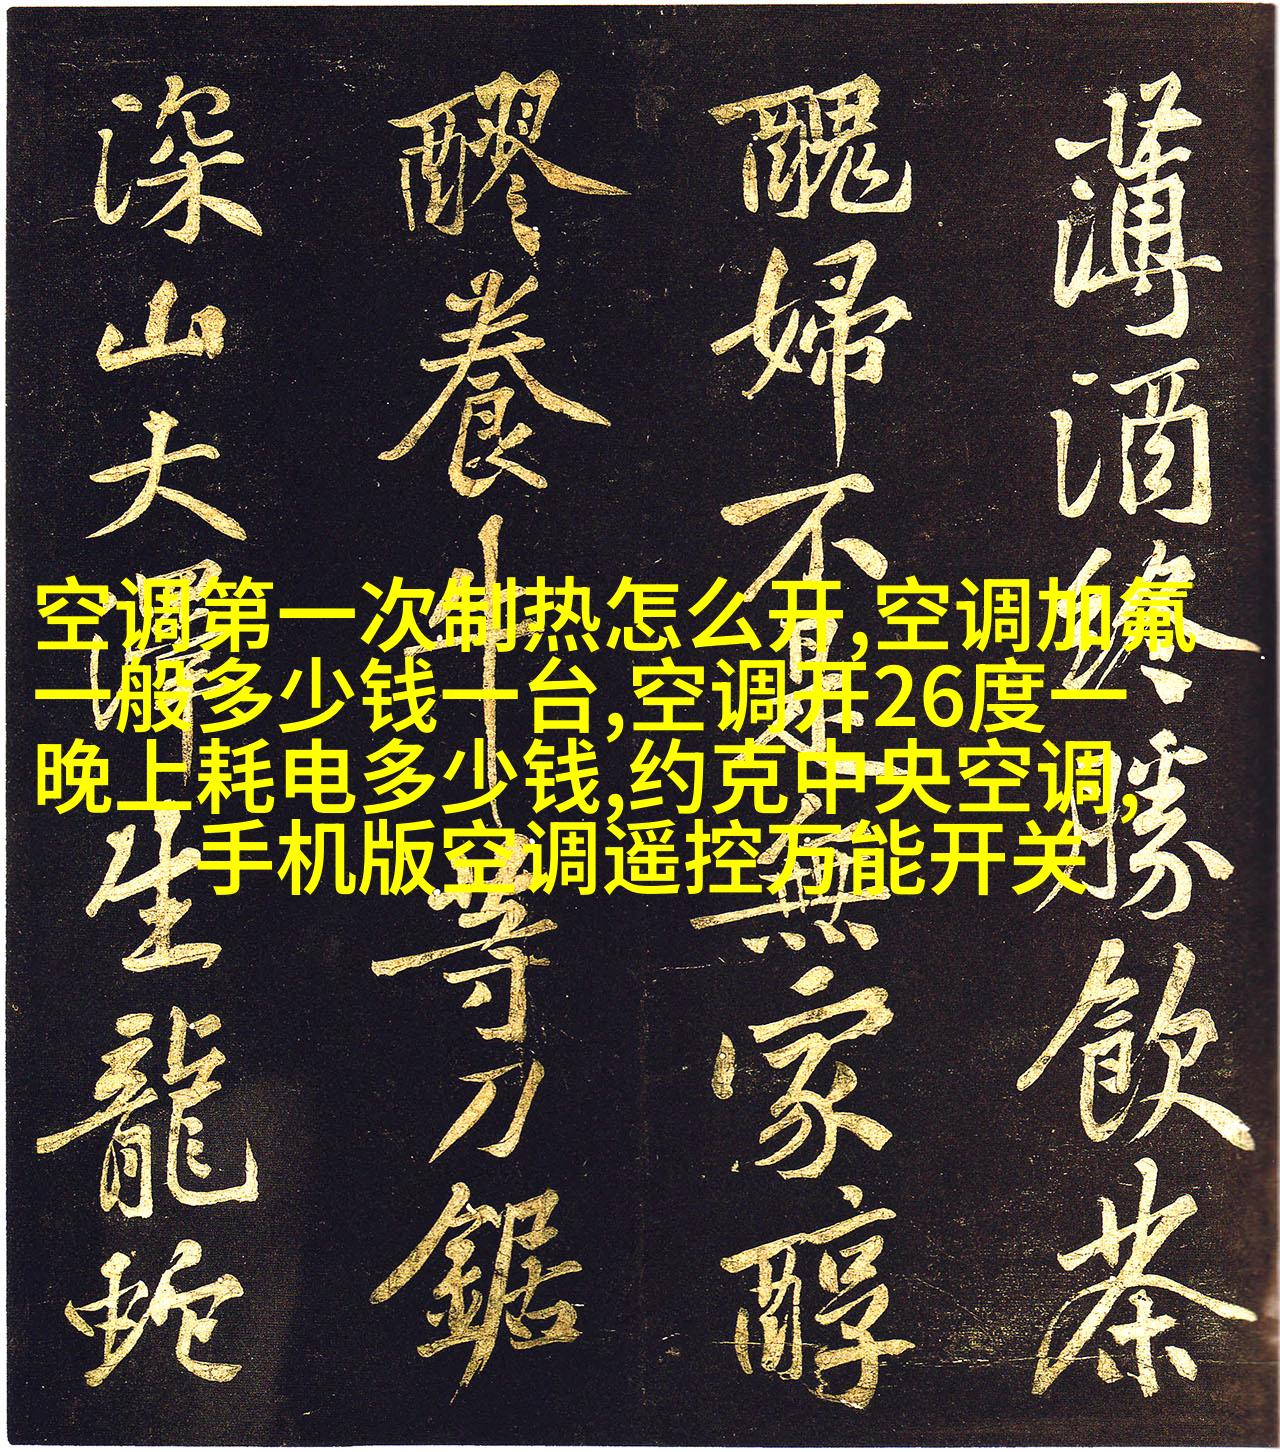 薄酒終勝飲茶
醜婦不是無家醇
醪養牛等刀鋸
深山大澤生龍蛇
空调第一次制热怎么开,空调加氟
一般多少钱一台,空调开26度一
晚上耗电多少钱,约克中央空调,
手机版空调遥控万能开关